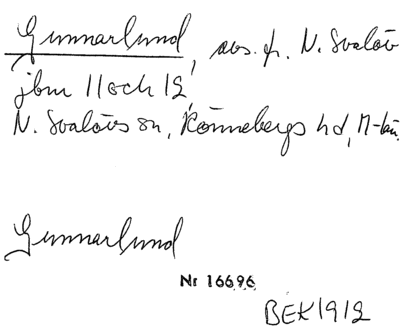 Gunnarlund, avs. fr. N. Svalöv
jbm 11 och 12
N. Svalövs sn, Rönnebergs hd, M-län.
Gunnarlund
Nr 16696
BEK 1912